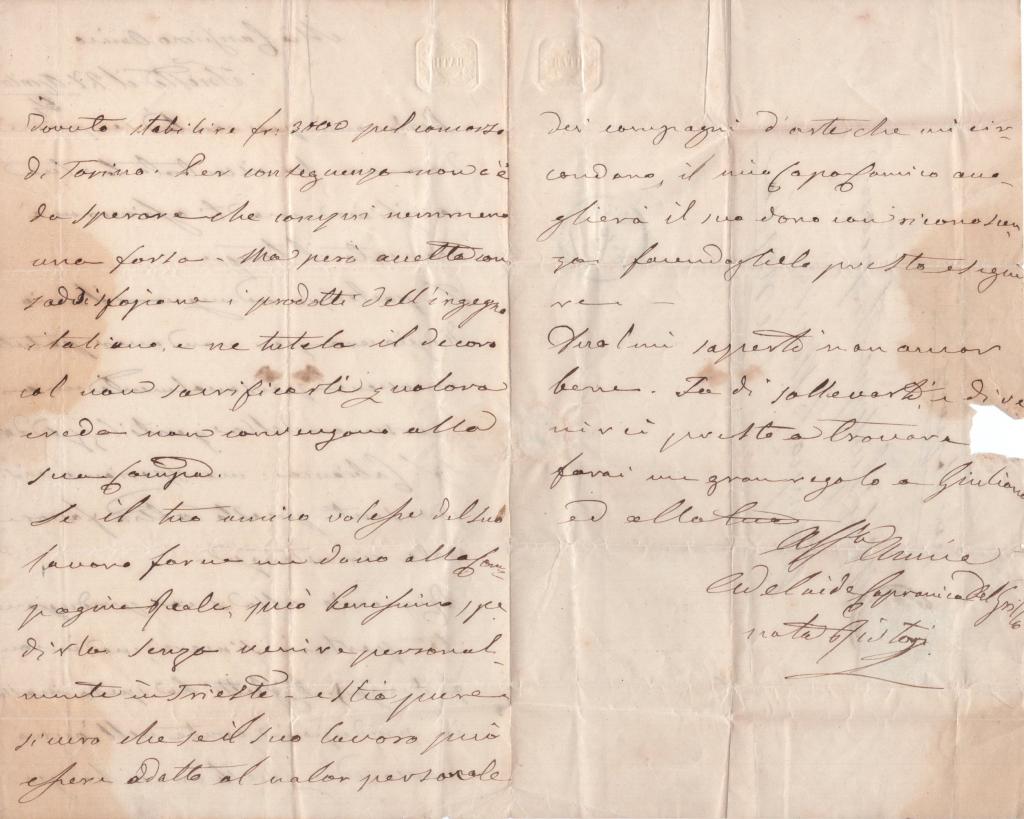 BATH
BATH
dovuto stabilire fr: 3000 pel concorso
di Torino. Per conseguenza non c'è
da sperare che compri nemmeno
una farsa - Ma però accetta con
saddisfazione i prodotti dell'ingegno
italiano, e ne tutela il decoro
col non sacrificarli qualora
creda non convengano alla
sua Compa.
Se il tuo amico volesse del suo
lavoro farne un dono alla Com=
pagnia Reale, può benissimo spe
dirlo senza venire personal=
mente in Trieste - e stia pure
sicuro che se il suo lavoro può
essere adatto al valor personale
dei compagni d'arte che mi cir=
condano, il mio Capocomico acco=
glierà il suo dono con riconoscen
za facendoglielo presto esegui
re -
Duolmi saperti non ancor
bene. Fa di sollevarti, e di ve
nirci presto a trovare
farai un gran regalo a Giuliano
ed alla tua
Affma Amica
Adelaide Capranica Del Grillo
nata Ristori